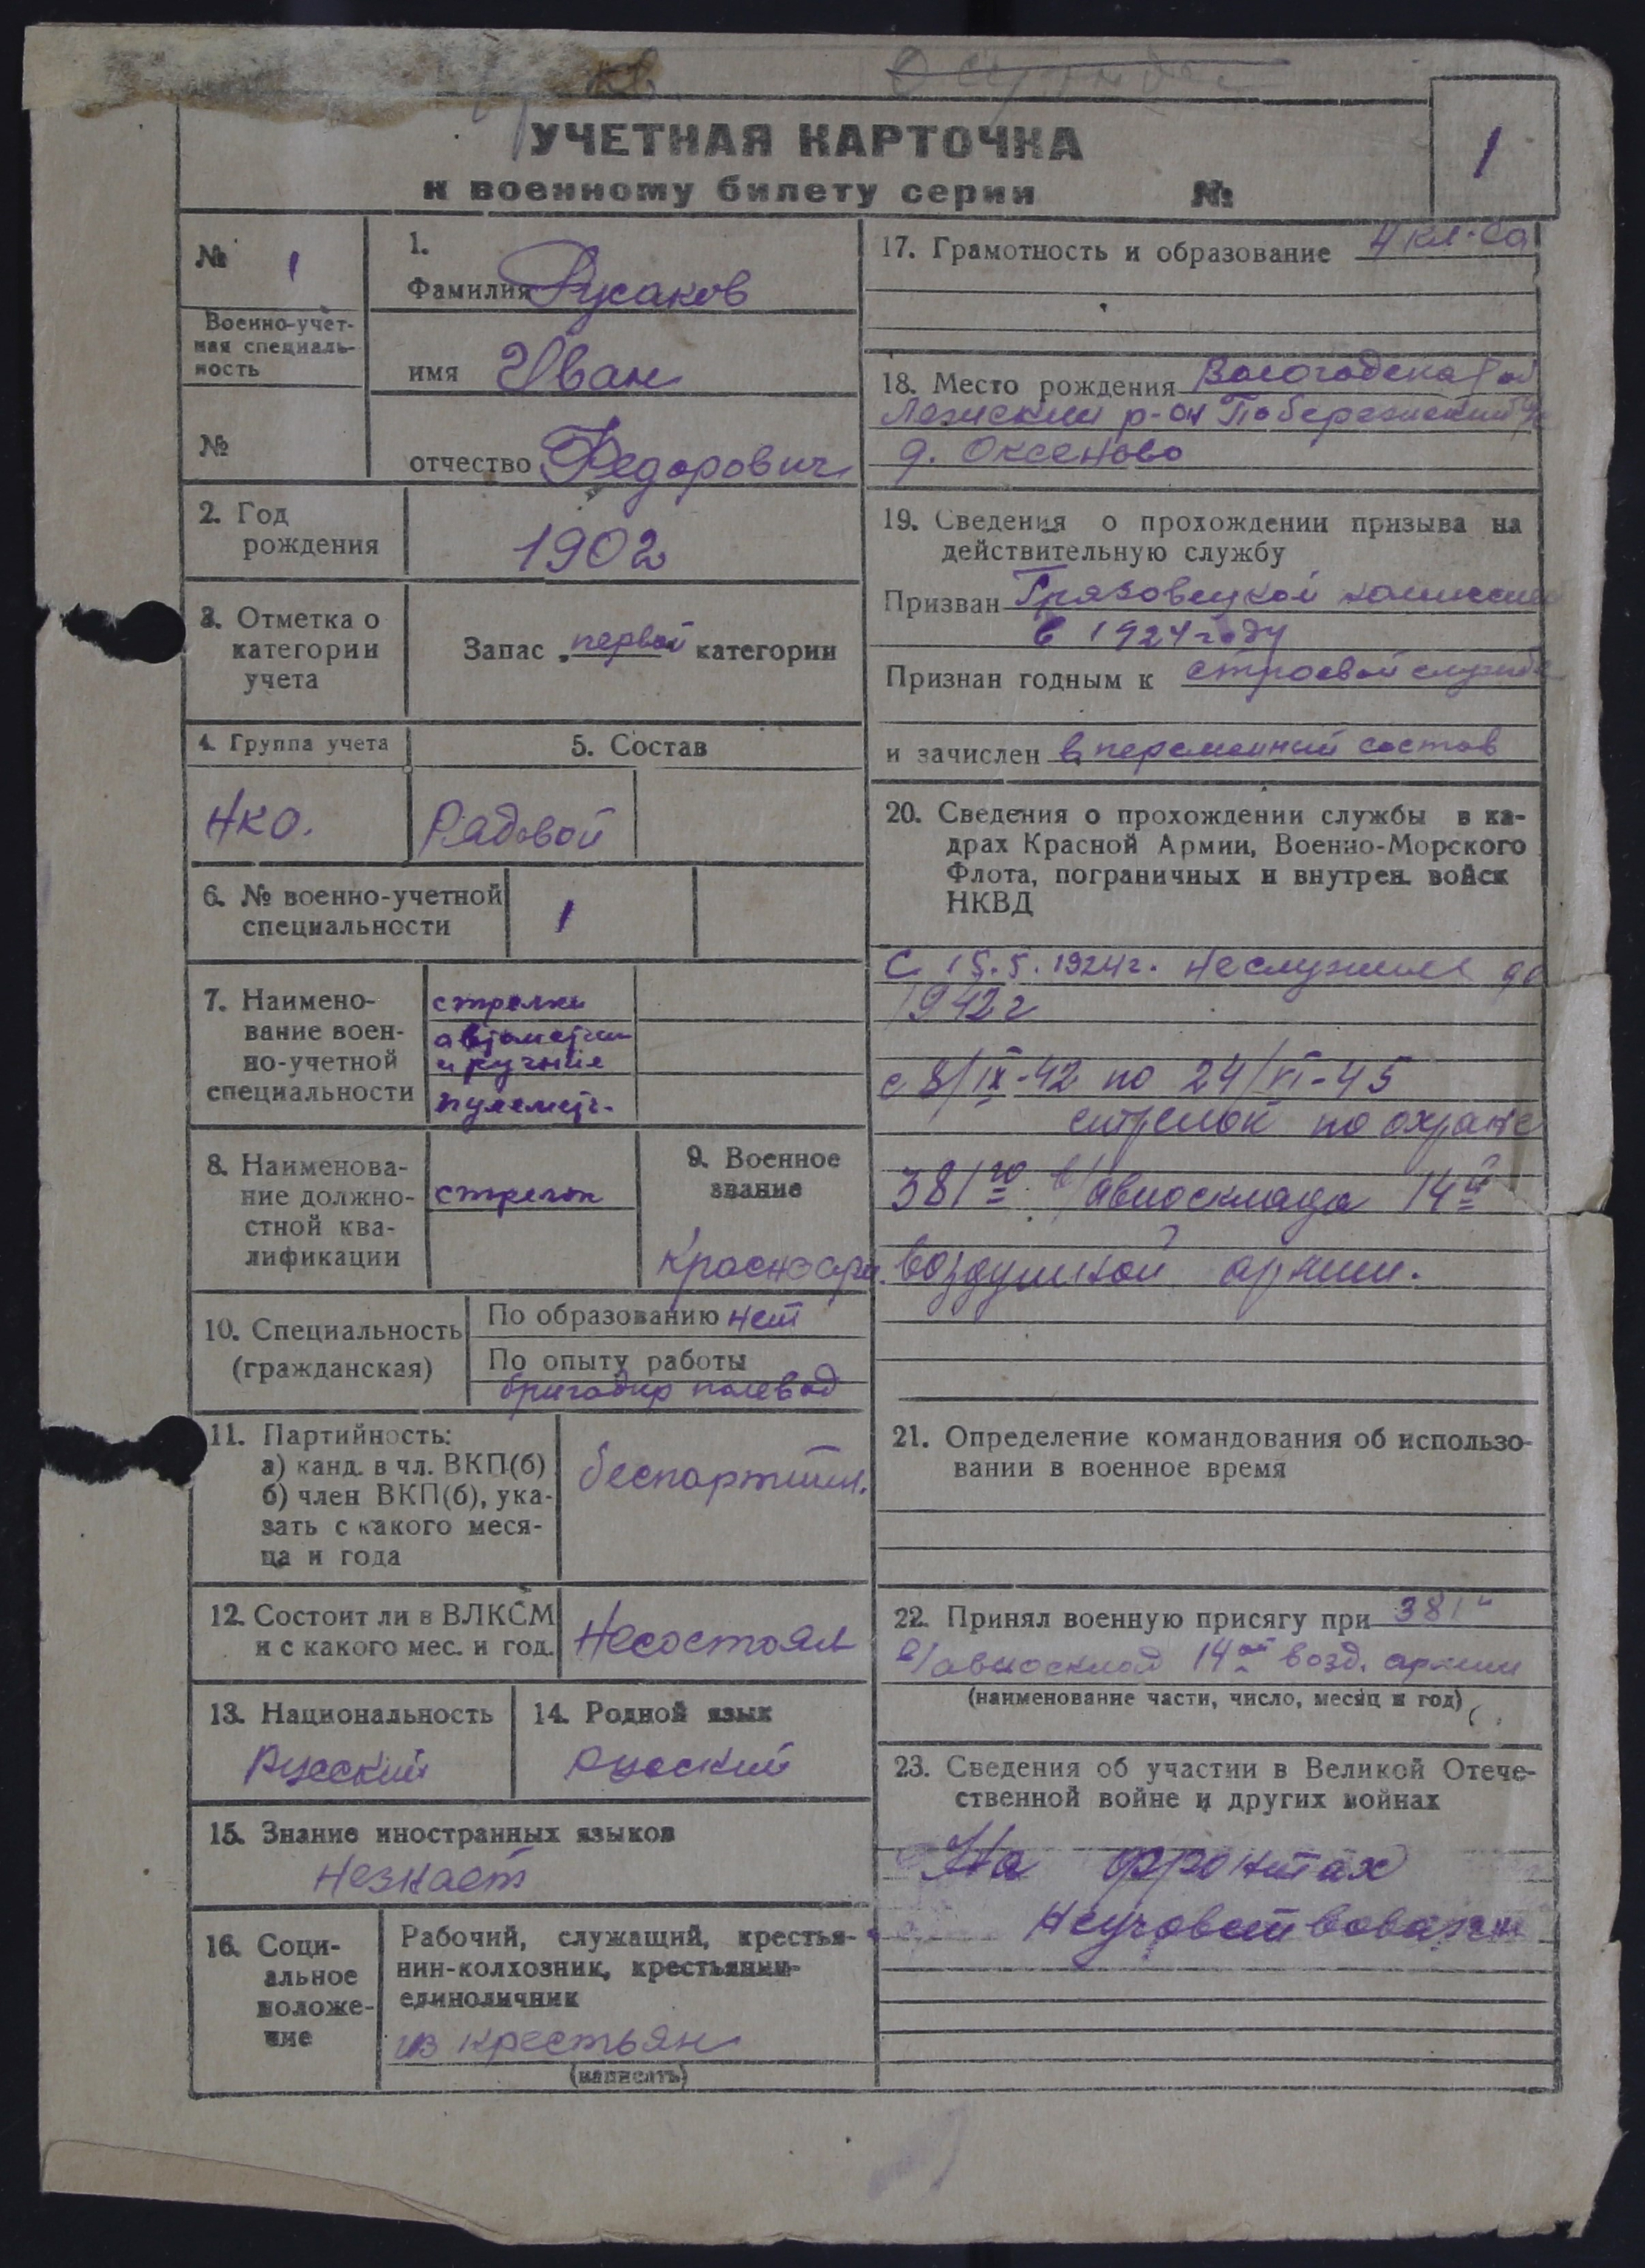 УЧЕТНАЯ КАРТОЧКА
к военному билету серии №
1
№ 1
Военно-учет-
ная специаль-
ность
№
1.
Фамилия Русаков
имя Иван
отчество Федорович
2. Год
рождения
1902
3. Отметка о
категории
учета
Запас первой категории
4. Группа учета
5. Состав
НКО.
Рядовой
6. № военно-учетной
специальности
1
7. Наимено-
вание воен-
но-учетной
специальности
стрелки
автоматчи
и ручные
пулемет.
8. Наименова-
ние должно-
стной ква-
лификации
стрелок
9. Военное
звание
Красноарм.
10. Специальность
(гражданская)
По образованию нет
По опыту работы
бригадир полевод
11. Партийность:
а) канд. в чл. ВКП(б)
б) член ВКП(б), ука-
зать с какого меся-
ца и года
беспартийн.
12. Состоит ли в ВЛКСМ
и с какого мес. и год.
Несостоял
13. Национальность
Русский
14. Родной язык
Русский
15. Знание иностранных языков
Незнает
16. Соци-
альное
положе-
ние
Рабочий, служащий, крестья-
нин-колхозник, крестьянин-
единоличник
из крестьян
(написать)
17. Грамотность и образование 4 кл.
18. Место рождения Вологодская об
Лежский р-он Побережский
д. Оксеново
19. Сведения о прохождении призыва на
действительную службу
Призван Грязовецкой комиссией
в 1924 году
Признан годным к строевой службе
и зачислен в переменный состав
20. Сведения о прохождении службы в ка-
драх Красной Армии, Военно-Морского
Флота, пограничных и внутрен. войск
НКВД
С 15.5.1924г. неслужил до
1942 г
с 8/IX-42 по 24/VI-45
стрелок по охране
381го в/авиосклада 14й
воздушной армии.
21. Определение командования об использо-
вании в военное время
22. Принял военную присягу при 381
в/авиосклад 14ой возд. армии
(наименование части, число, месяц и год)
23. Сведения об участии в Великой Отече-
ственной войне и других войнах
На фронтах